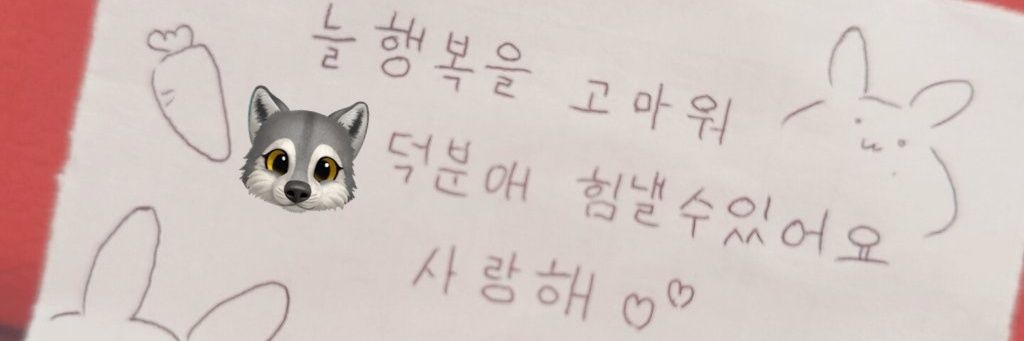 늘 행복을 고마워
덕분애 힘낼수있어요
사랑해 ♡♡